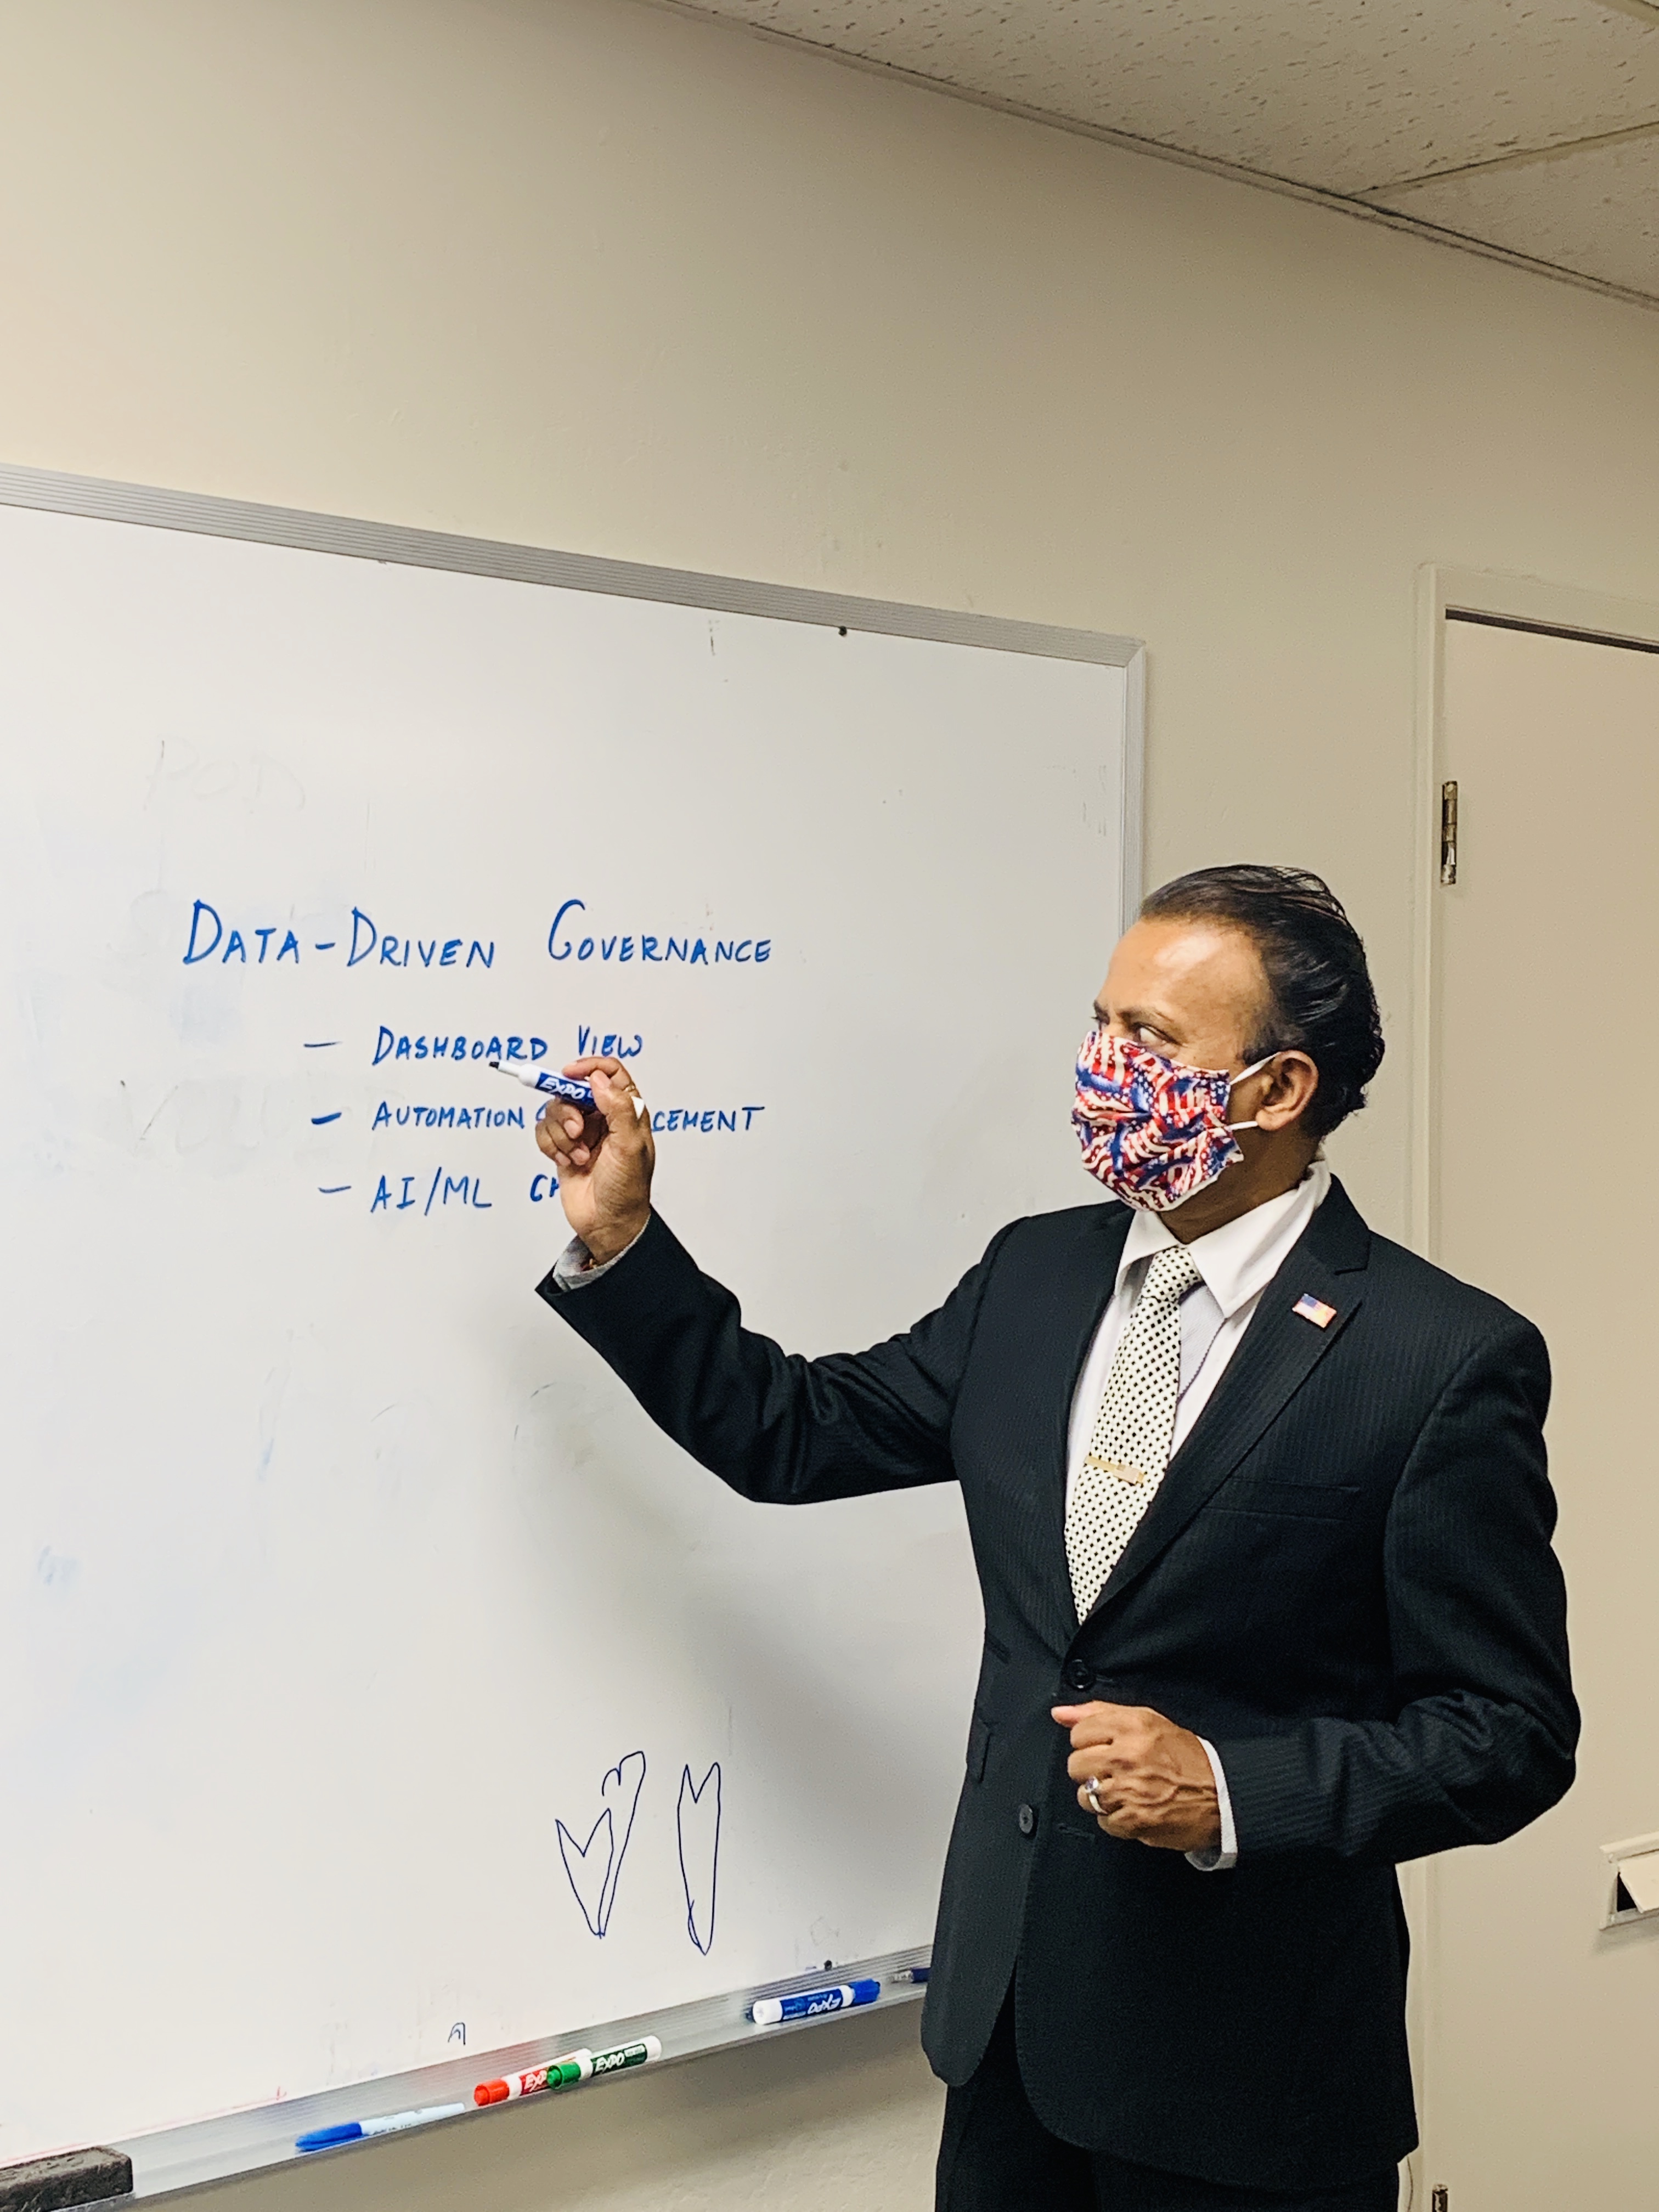 DATA-DRIVEN GOVERNANCE
- DASHBOARD VIEW
- AUTOMATION CEMENT
- AI/ML
EXPO
EXPO
EXPO
EXP